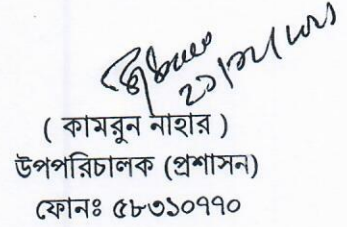 ( কামরুন নাহার )
উপপরিচালক (প্রশাসন)
ফোনঃ ৫৮৩১০৭৭০